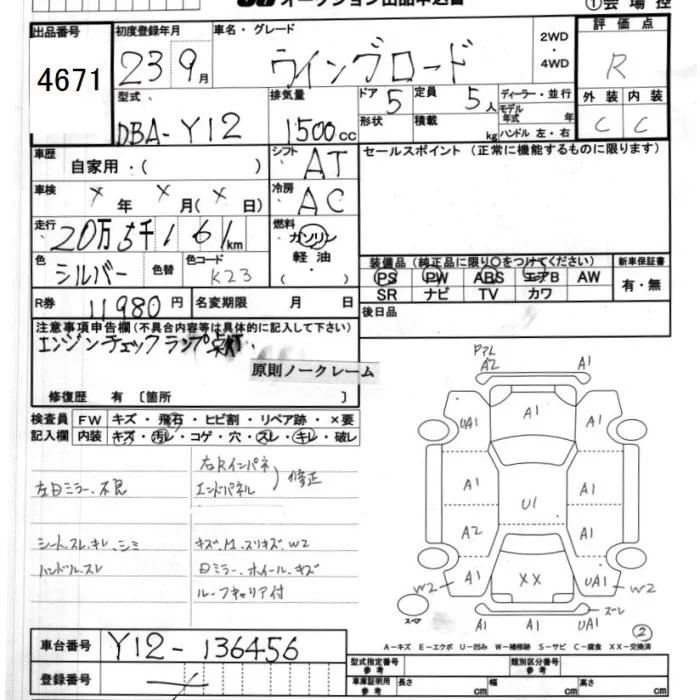 オークション出品申込書
①会場控
出品番号
4671
初度登録年月
23 9月
車名・グレード
ウイングロード
2WD
・
4WD
評価点
R
型式
DBA-Y12
排気量
1500cc
ドア 5
定員 5人
形状
積載 kg
ディーラー・並行
モデル年式 年
ハンドル 左・右
外装 内装
C C
車歴
自家用・( )
シフト AT
セールスポイント (正常に機能するものに限ります)
車検 × 年 × 月(× 日)
冷房 AC
走行 20万5千161km
燃料
ガソリン
軽油
・( )
色 シルバー 色替
色コード K23
装備品 (純正品に限り○をつけてください)
新車保証書
PS PW ABS エアB AW
有・無
SR ナビ TV カワ
R券 11980円
名変期限 月 日
後日品
注意事項申告欄 (不具合内容等は具体的に記入して下さい)
エンジンチェックランプ点灯.
原則ノークレーム
修復歴 有 〔箇所 〕
検査員
記入欄
FW キズ・飛石・ヒビ割・リペア跡・×要
内装 キズ・汚レ・コゲ・穴・スレ・キレ・破レ
右Rインパネ
エンドパネル
修正
左日ミラー.不良
シート.スレ.キレ.シミ
キズ.M.スリキズ.W2
ハンドル.スレ
日ミラー.ホイール.キズ
ルーフキャリア付
A2 A1
UA1 A1 A1
A1 A1
U1
A2 A1
W2 A1 XX UA1 W2
スペア
A1 A1 UA1 ズレ
②
A-キズ E-エクボ U-凹み W-補修跡 S-サビ C-腐食 XX-交換済
車台番号 Y12-136456
登録番号
型式指定番号 参考
類別区分番号 参考
車庫証明用 参考
長さ cm
幅 cm
高さ cm